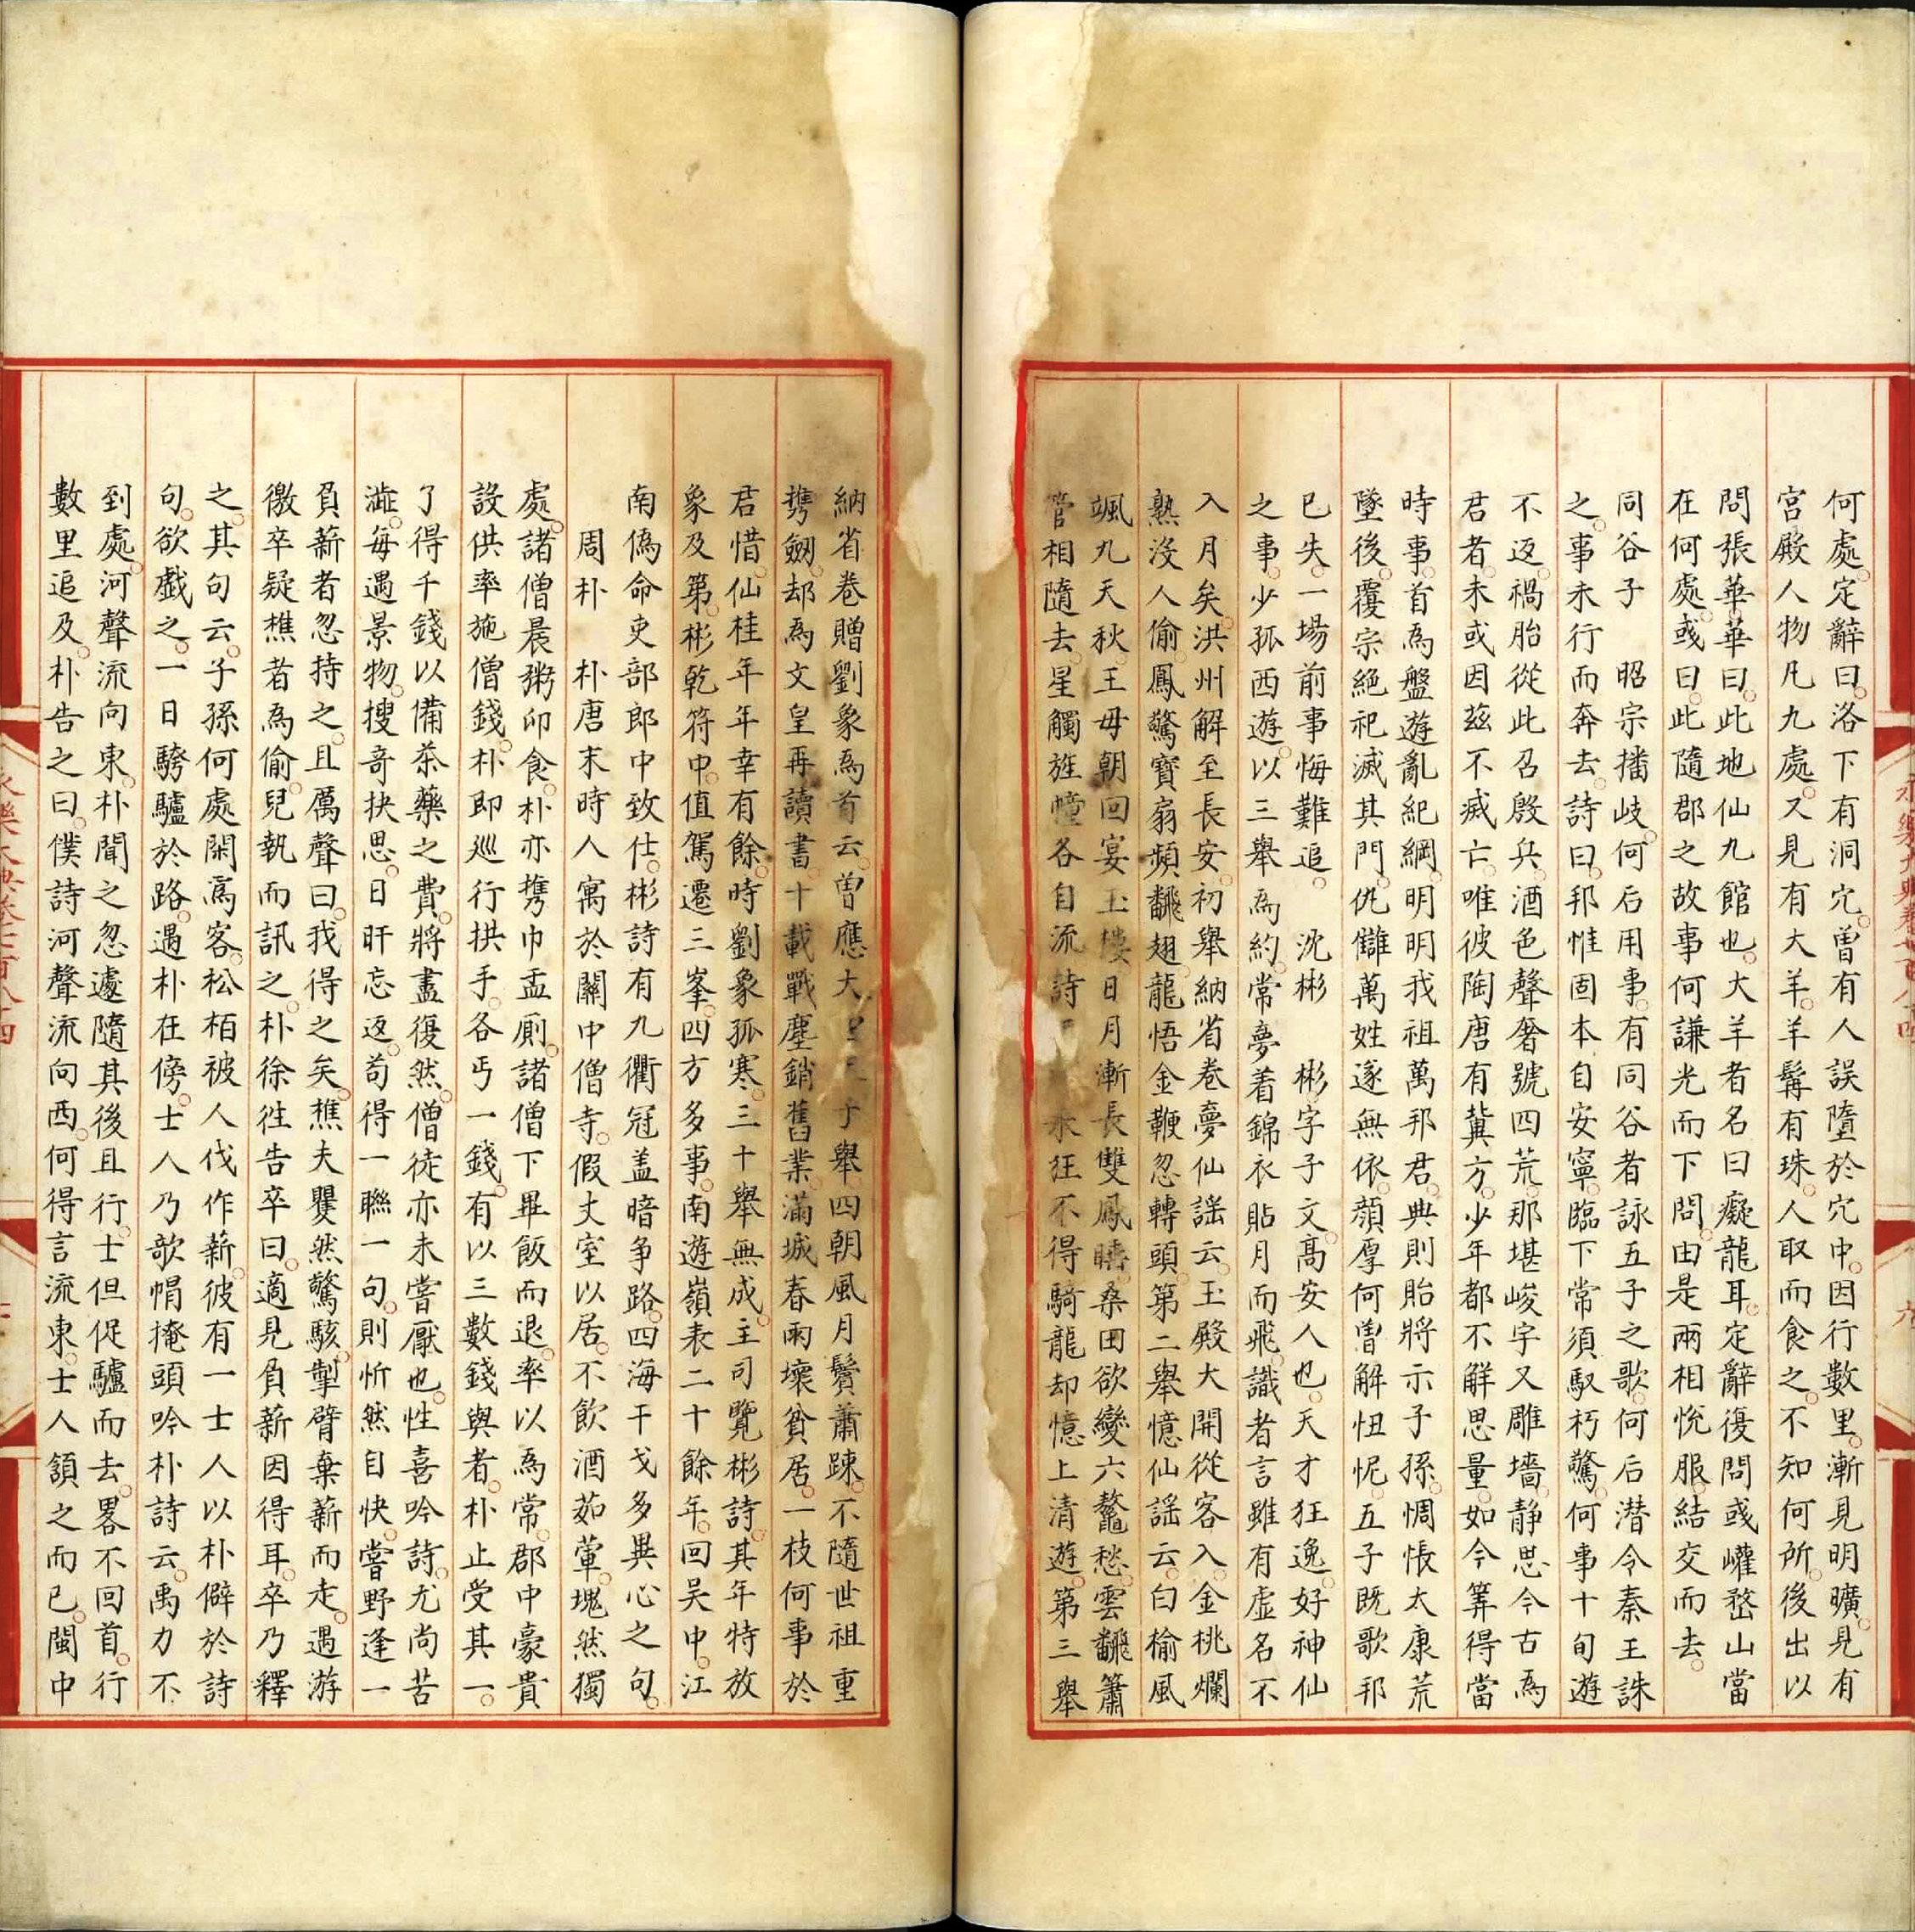 何處定辭曰洛下有洞穴曽有人誤墮於穴中因行數里漸見明曠見有
宮殿人物凡九處又見有大羊羊髯有珠人取而食之不知何所後出以
問張華華曰此地仙九館也大羊者名曰癡龍耳定辭復問彧巏嵍山當
在何處彧曰此隨郡之故事何謙光而下問由是兩相悅服結交而去
同谷子　昭宗播岐何后用事有同谷者詠五子之歌何后潜令秦王誅
之事未行而奔去詩曰邦惟固本自安寧臨下常須馭朽驚何事十旬遊
不返禍胎從此召殷兵酒色聲奢號四荒那堪峻宇又雕墻静思今古為
君者未或因兹不㓕亡唯彼陶唐有冀方少年都不解思量如今筭得當
時事首為盤遊亂紀綱明明我祖萬邦君典則貽將示子孫惆悵太康荒
墜後覆宗絕祀滅其門仇讎萬姓逐無依顔厚何曽解忸怩五子既歌邦
已失一場前事悔難追　沈彬　彬字子文高安人也天才狂逸好神仙
之事少孤西遊以三舉為約常夢着錦衣貼月而飛識者言雖有虚名不
入月矣洪州解至長安初舉納省卷夢仙謡云玉殿大開從客入金桃爛
熟沒人偷鳳驚寶扇頻翻翅龍悟金鞭忽轉頭第二舉憶仙謡云白榆風
颯九天秋王母朝回宴玉樓日月漸長雙鳳睡桑田欲變六鼇愁雲翻簫
管相隨去星觸旌幢各自流詩　　水狂不得騎龍却憶上清遊第三舉
納省卷贈劉象為首云曽應大　　　子舉四朝風月鬢蕭踈不隨世祖重
携劒却為文皇再讀書十載戰塵銷舊業滿城春雨壞貧居一枝何事於
君惜仙桂年年幸有餘時劉象孤寒三十舉無成主司覽彬詩其年特放
象及第彬乾符中值駕遷三峯四方多事南遊嶺表二十餘年回吴中江
南偽命吏部郎中致仕彬詩有九衢冠盖暗争路四海干戈多異心之句
周朴　朴唐末時人寓於關中僧寺假丈室以居不飲酒茹葷塊然獨
處諸僧晨粥卯食朴亦携巾盂厠諸僧下畢飯而退率以為常郡中豪貴
設供率施僧錢朴即巡行拱手各丐一錢有以三數錢與者朴止受其一
了得千錢以備茶藥之費將盡復然僧徒亦未嘗厭也性喜吟詩尤尚苦
澁每遇景物搜奇抉思日旰忘返苟得一聯一句則忻然自快嘗野逢一
負薪者忽持之且厲聲曰我得之矣樵夫矍然驚駭掣臂棄薪而走遇游
徼卒疑樵者為偷兒執而訊之朴徐徃告卒曰適見負薪因得耳卒乃釋
之其句云子孫何處閑爲客松栢被人伐作薪彼有一士人以朴僻於詩
句欲戲之一日騎驢於路遇朴在傍士人乃歌帽掩頭吟朴詩云禹力不
到處河聲流向東朴聞之忽遽隨其後且行士但促驢而去畧不回首行
數里追及朴告之曰僕詩河聲流向西何得言流東士人頷之而已閩中